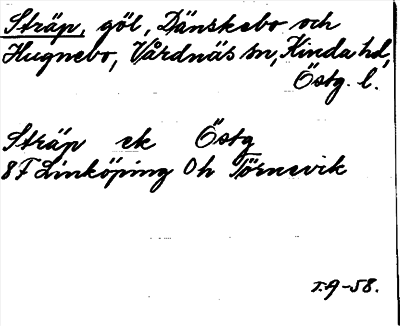 Sträp, göl, Dänskebo och
Hugnebo, Vårdnäs sn, Kinda hd,
Östg. l.
Sträp ek Östg
8F Linköping 0h Törnevik
I.A-58.